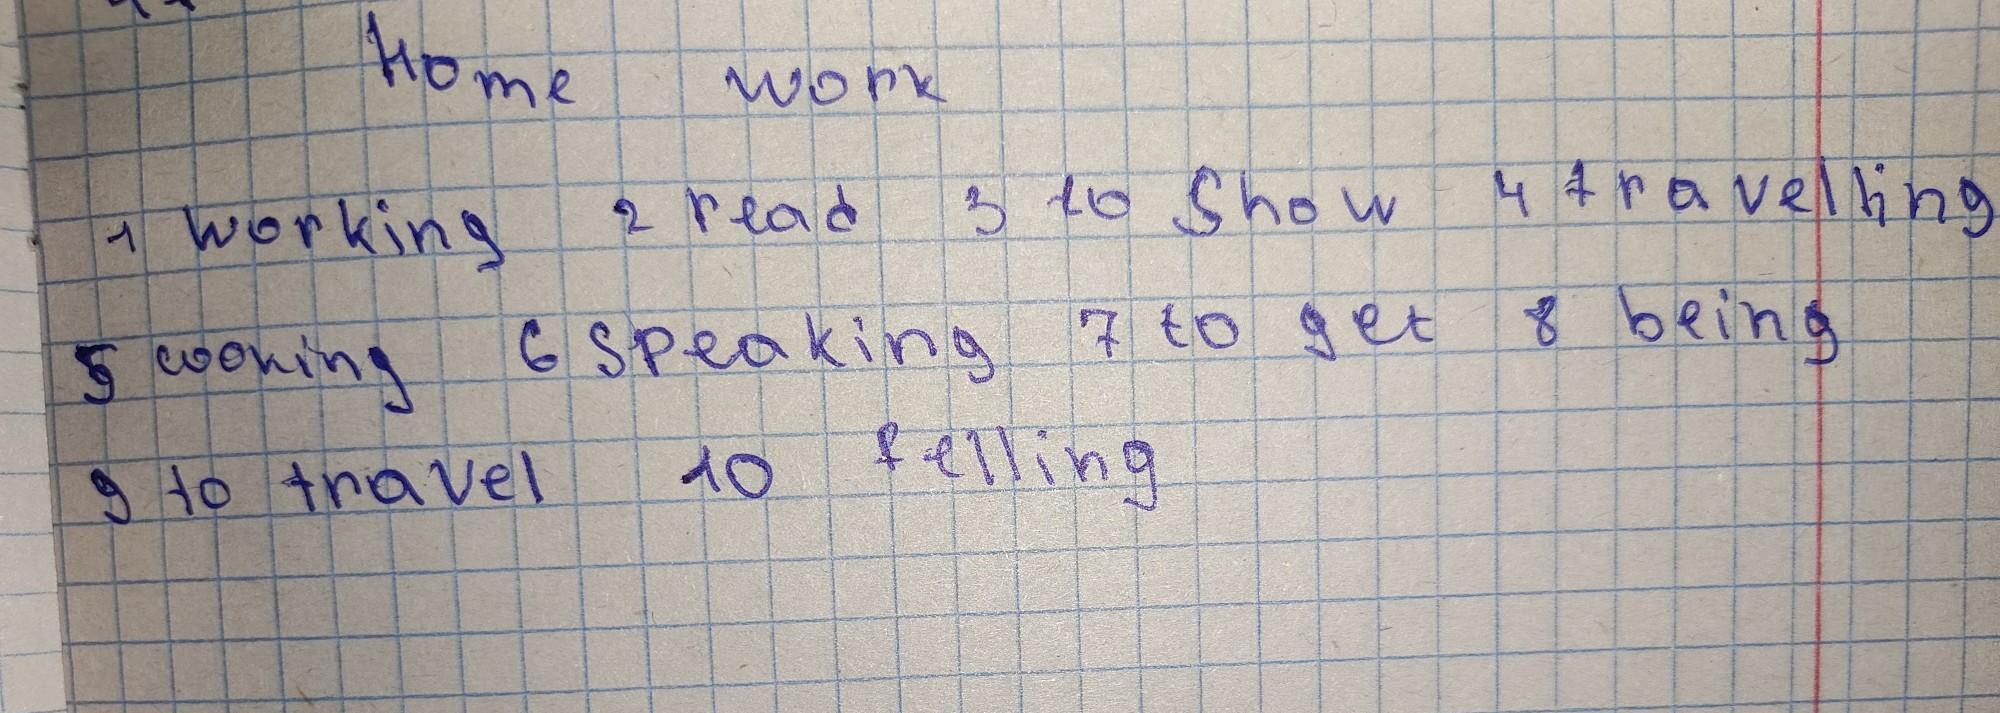 Home work
1 working 2 read 3 to show 4 travelling
5 cooking 6 speaking 7 to get 8 being
9 to travel 10 felling